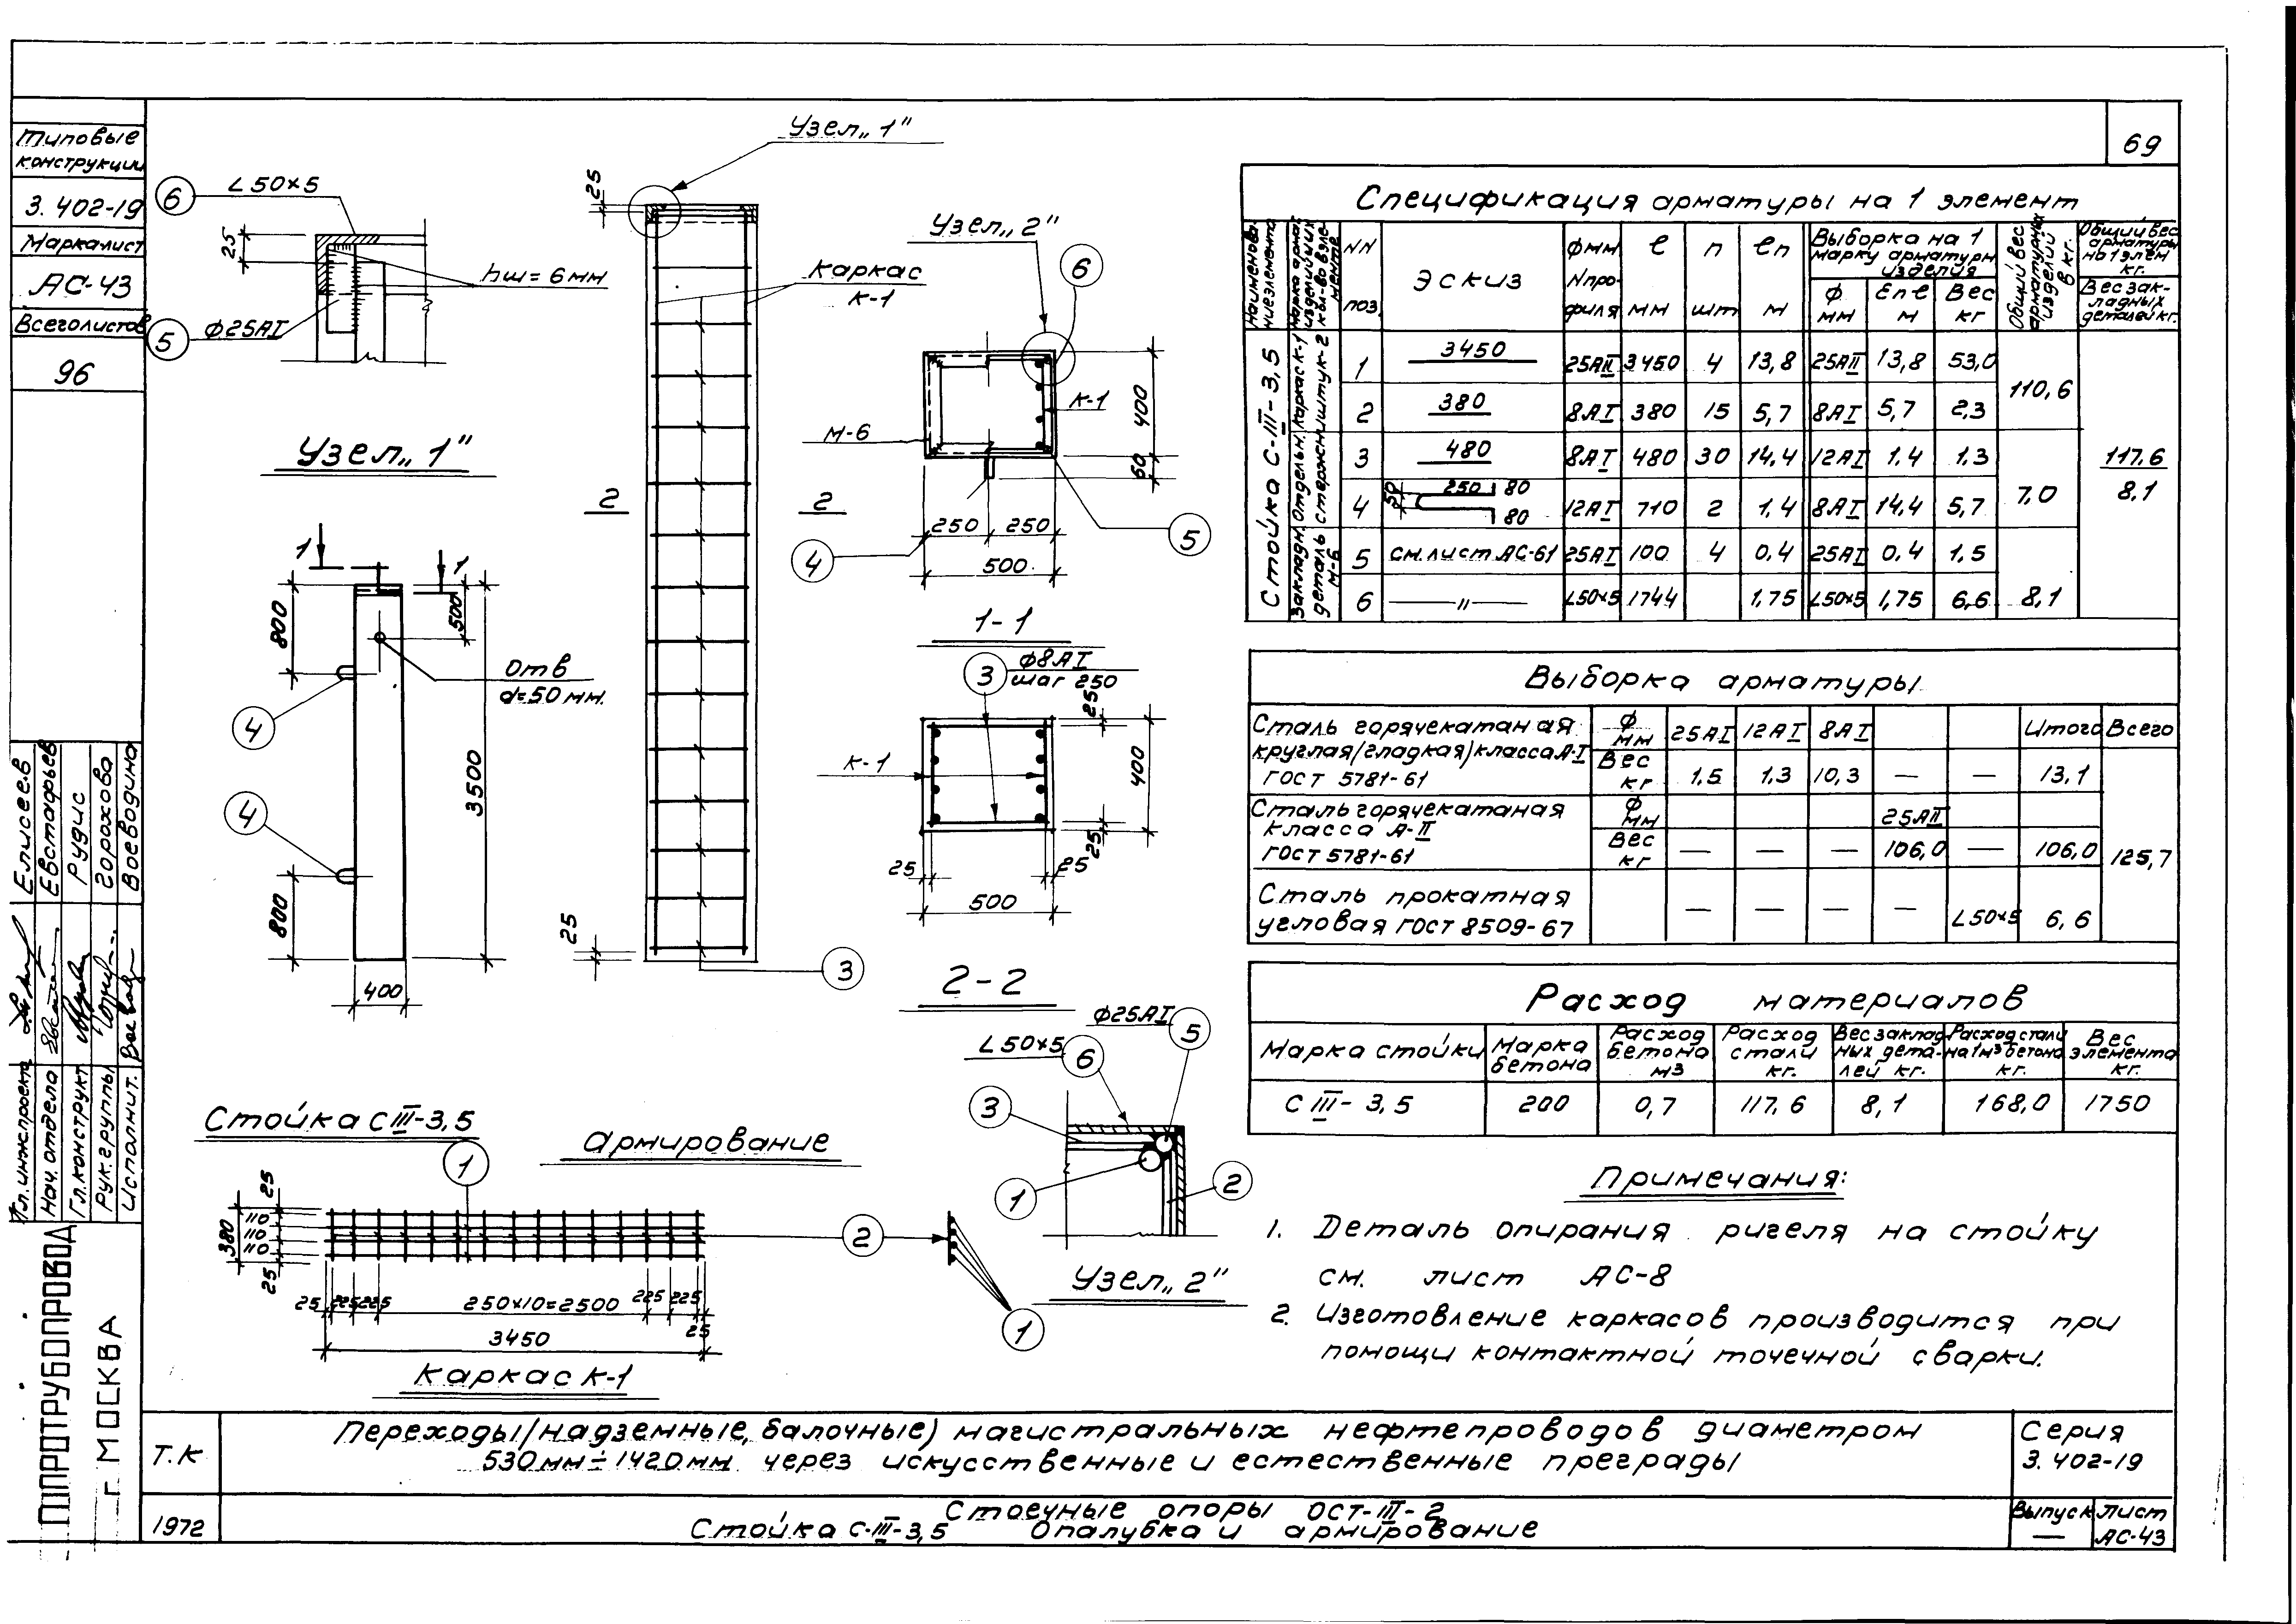 69
Типовые
конструкции
3.402-19
Марка лист
АС-43
Всего листов
96
Елисеев
Евстафьев
Рудис
Горохова
Воеводина
Гл.инж.проекта
Нач. отдела
Гл.конструкт.
Рук.группы
Исполнит.
ГИПРОТРУБОПРОВОД
г. МОСКВА
6
L 50×5
25
hш=6мм
5
Ф25АI
Узел„1"
Узел„1"
25
каркас
К-1
2
2
25
3
1
1
800
500
Отв
d=50мм.
4
3500
4
800
400
Стойка СIII-3,5
Армирование
Узел„2"
6
К-1
М-6
400
60
250
250
4
5
500
1-1
3
Ф8АI
шаг 250
25
К-1
400
25
25
25
500
2-2
Ф25АI
5
L50×5
6
3
1
2
Узел„2"
1
25
110
110
110
380
25
2
25
225
225
250×10=2500
225
225
25
3450
1
Каркас К-1
Спецификация арматуры на 1 элемент
Наименова-
ние элемента
Марка армат.
изделий и их
кол-во в эле-
менте
NN
поз.
Эскиз
Фмм
Nпро-
филя
ℓ
мм
п
шт
ℓп
м
Выборка на 1
марку арматурн
изделия
Ф
мм
Σпℓ
м
Вес
кг
Общий вес
арматурных
изделий
в кг.
Общий вес
арматуры
на 1 элем
кг.
Вес зак-
ладных
деталей кг.
Стойка С-III-3,5
Каркас К-1
штук-2
Отдельн.
стержни
Закладн.
деталь
М-6
1
3450
25АII
3450
4
13,8
25АII
13,8
53,0
110,6
2
380
8АI
380
15
5,7
8АI
5,7
2,3
3
480
8АI
480
30
14,4
12АI
1,4
1,3
7,0
117,6
8,1
4
50
250
80
80
12АI
710
2
1,4
8АI
14,4
5,7
5
см. лист АС-61
25АI
100
4
0,4
25АI
0,4
1,5
6
—〃—
L50×5
1744
1,75
L50×5
1,75
6,6
8,1
Выборка арматуры
Сталь горячекатаная
круглая/гладкая/класса А-I
ГОСТ 5781-61
Ф
мм
25АI
12АI
8АI
Итого
Всего
Вес
кг
1,5
1,3
10,3
—
—
13,1
Сталь горячекатаная
класса А-II
ГОСТ 5781-61
Ф
мм
25АII
Вес
кг
—
—
—
106,0
—
106,0
125,7
Сталь прокатная
угловая ГОСТ 8509-67
—
—
—
—
L50×5
6,6
Расход материалов
Марка стойки
Марка
бетона
Расход
бетона
м3
Расход
стали
кг.
Вес заклад
ных дета-
лей кг.
Расход стали
на 1м³ бетона
кг.
Вес
элемента
кг.
С III- 3,5
200
0,7
117,6
8,1
168,0
1750
Примечания:
1. Деталь опирания ригеля на стойку
см. лист АС-8
2. Изготовление каркасов производится при
помощи контактной точечной сварки.
Т.К
Переходы/надземные, балочные) магистральных нефтепроводов диаметром
530мм÷1420мм через искусственные и естественные преграды
Серия
3.402-19
1972
Стоечные опоры ОСТ-III-2
Стойка С-III-3,5 Опалубка и армирование
Выпуск
—
Лист
АС-43